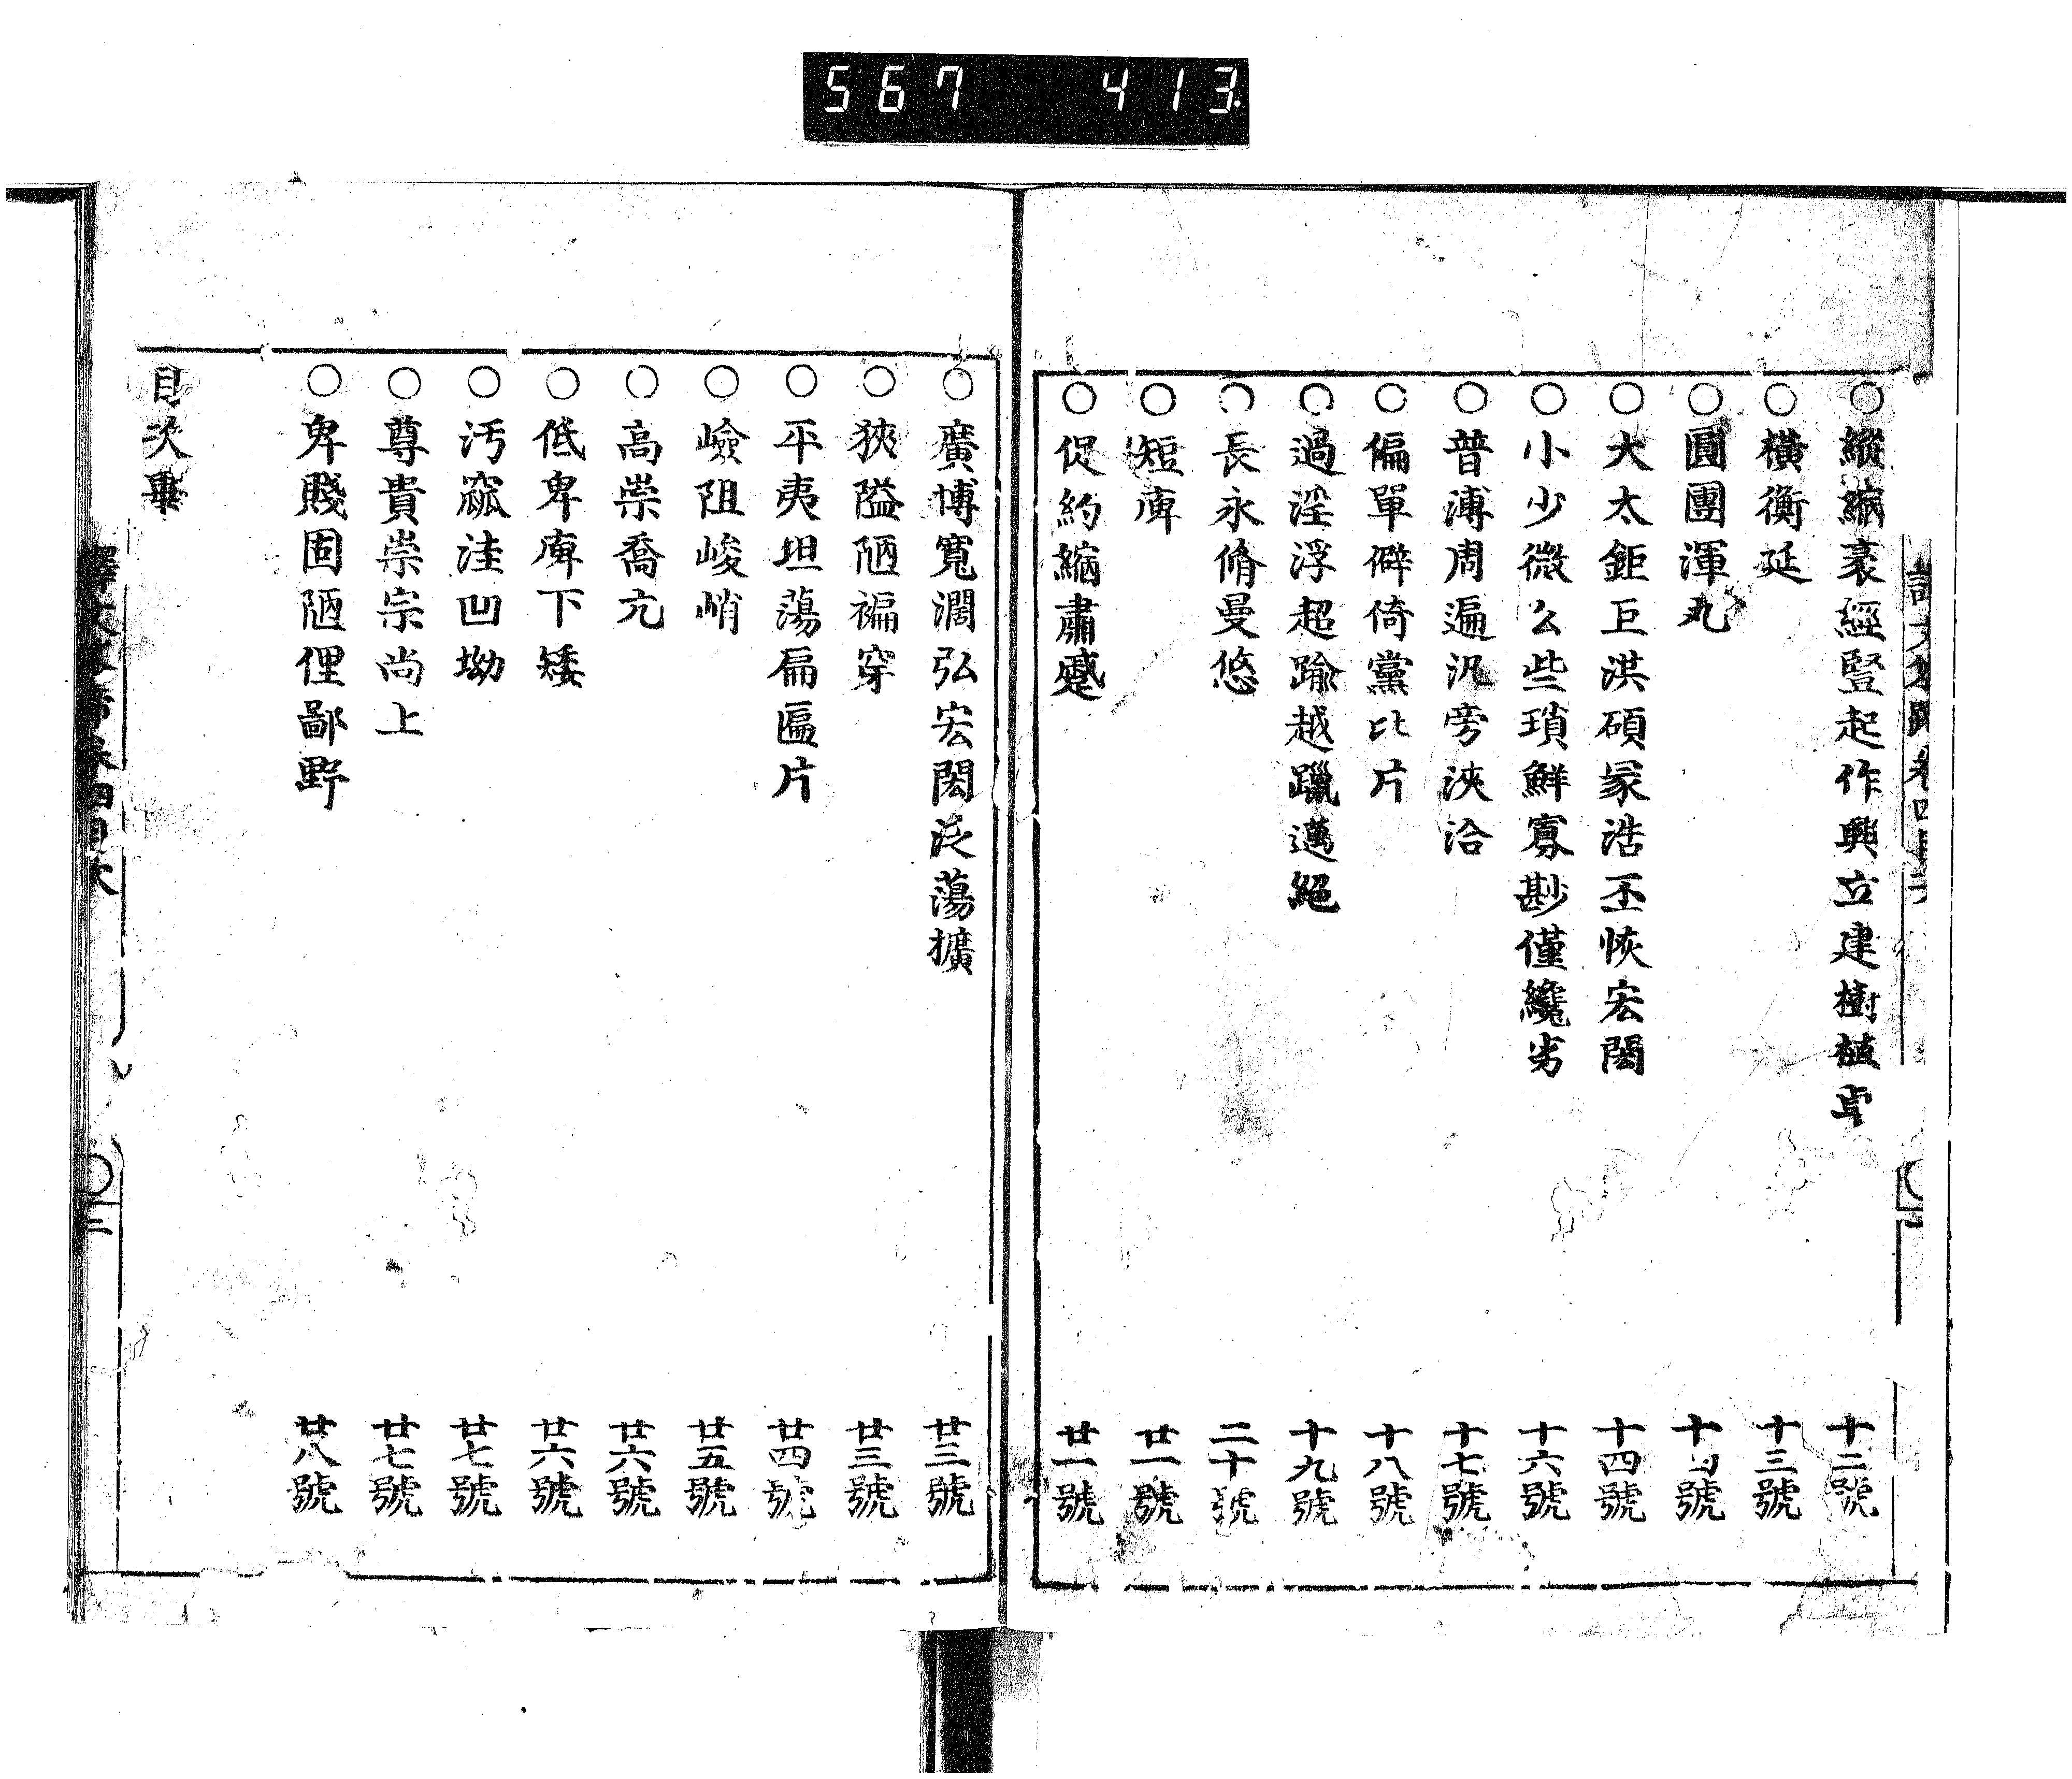 567 413
○縱縮袤經豎起作興立建樹植卓 十二號
○橫衡延 十三號
○圓團渾丸 十四號
○大太鉅巨洪碩冢浩丕恢宏閎 十四號
○小少微么些瑣鮮寡尠僅纔劣 十六號
○普溥周遍汎旁浹洽 十七號
○偏單僻倚黨比片 十八號
○過淫浮超踰越躐邁絕 十九號
○長永脩曼悠 二十號
○短庳 廿一號
○促約縮肅蹙 廿一號
○廣博寬濶弘宏閎泛蕩擴 廿三號
○狹隘陋褊窄 廿三號
○平夷坦蕩扁匾片 廿四號
○嶮阻峻峭 廿五號
○高崇喬亢 廿六號
○低卑庳下矮 廿六號
○汚窳洼凹坳 廿七號
○尊貴崇宗尚上 廿七號
○卑賤固陋俚鄙野 廿八號
目次畢
卷四目次
二